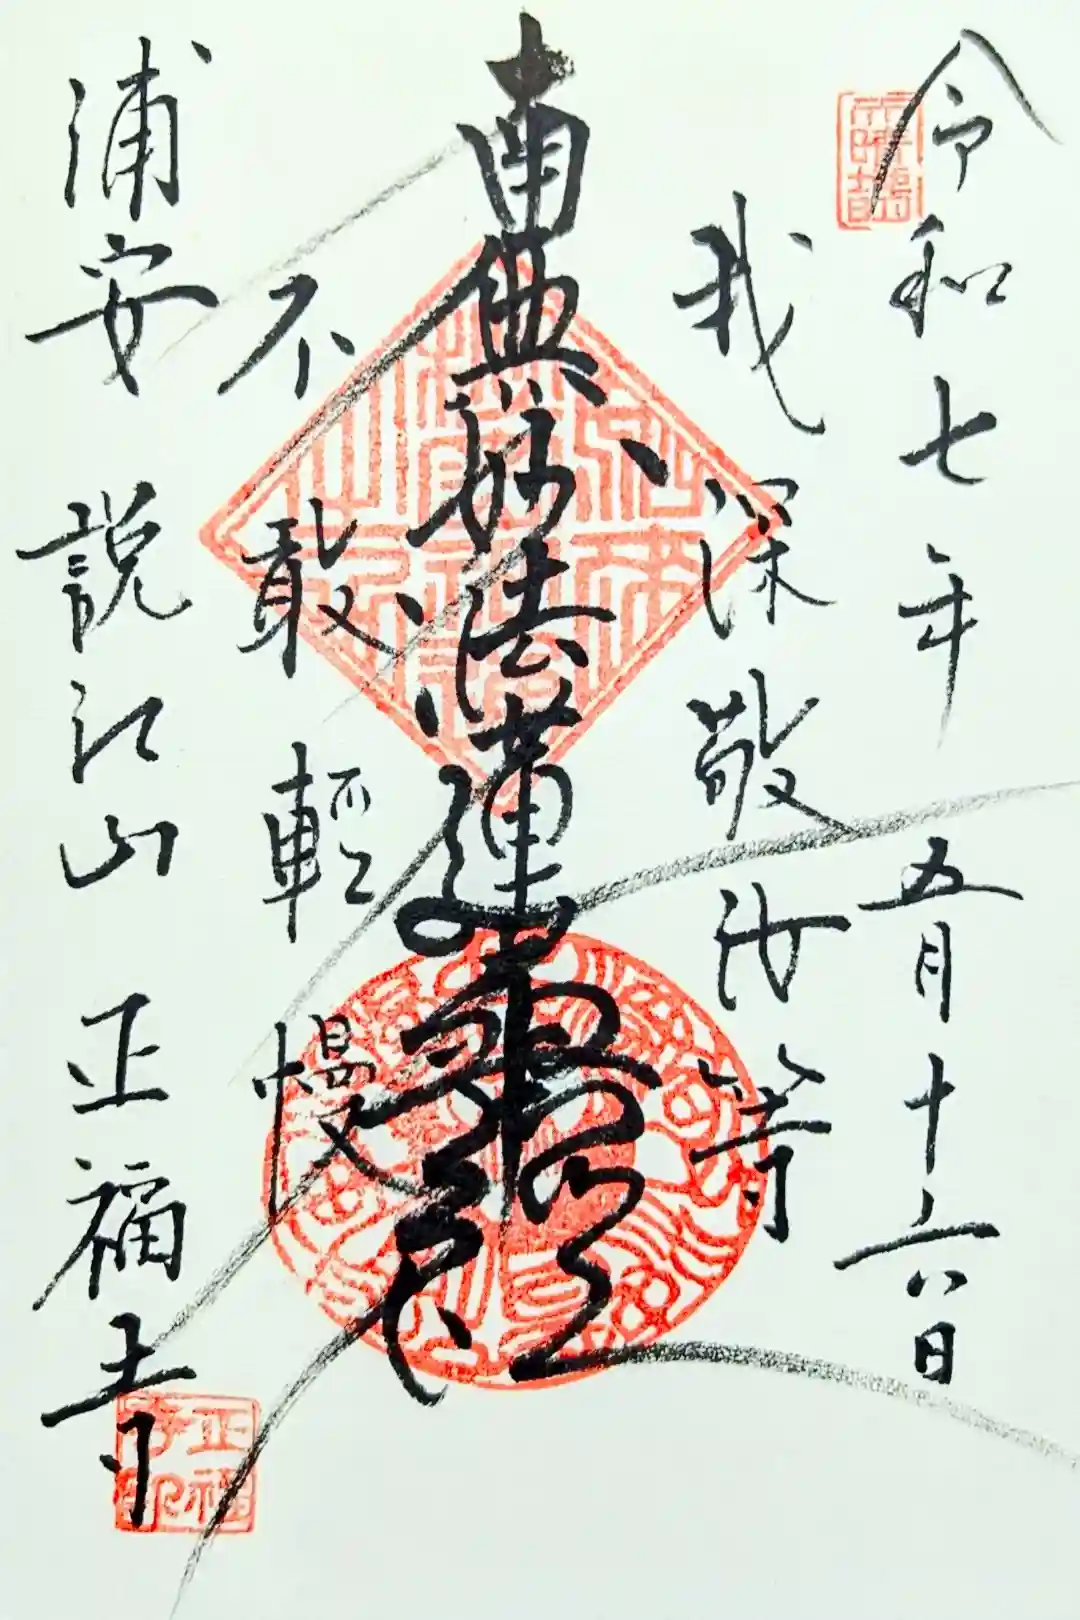 令和七年 五月十六日
我深敬汝等
南無妙法蓮華経
不敢輕慢
浦安 説江山 正福寺
正福寺印